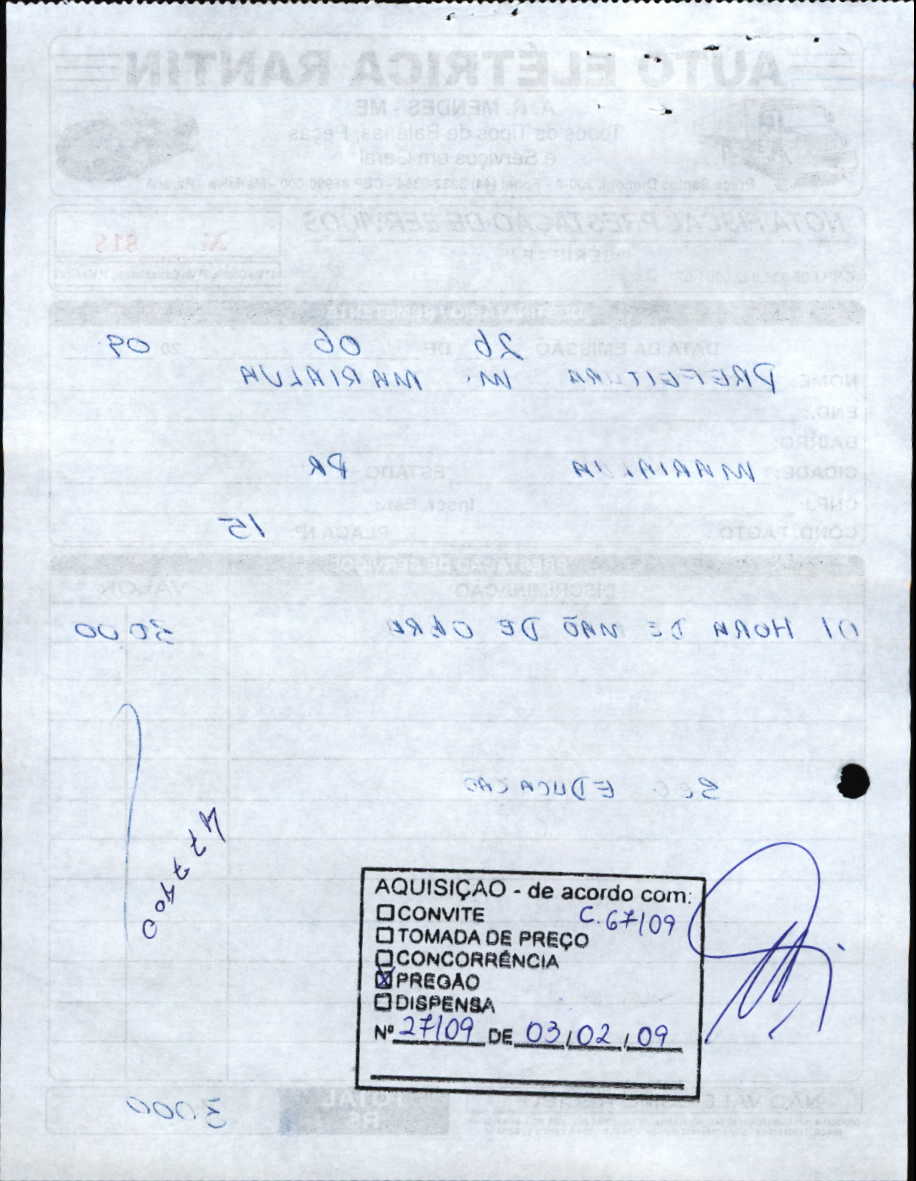 AUTO ELÉTRICA RANTIN
A. R. MENDES - ME
Todos os Tipos de Baterias, Peças
e Serviços em Geral
NOTA FISCAL PRESTAÇÃO DE SERVIÇOS
Nº 818
DATA DA EMISSÃO 26 DE 06 20 09
NOME: PREFEITURA M. MARIALVA
END.:
BAIRRO:
CIDADE: MARIALVA ESTADO PR
CNPJ: Inscr. Est.:
PLACA Nº 15
PRESTAÇÃO DE SERVIÇOS
DISCRIMINAÇÃO VALOR
01 HORA DE MÃO DE OBRA 30.00
SEC. EDUCAÇÃO
AQUISIÇÃO - de acordo com:
☐ CONVITE C.67/09
☐ TOMADA DE PREÇO
☐ CONCORRÊNCIA
☒ PREGÃO
☐ DISPENSA
Nº 27/09 DE 03/02/09
TOTAL R$ 3000